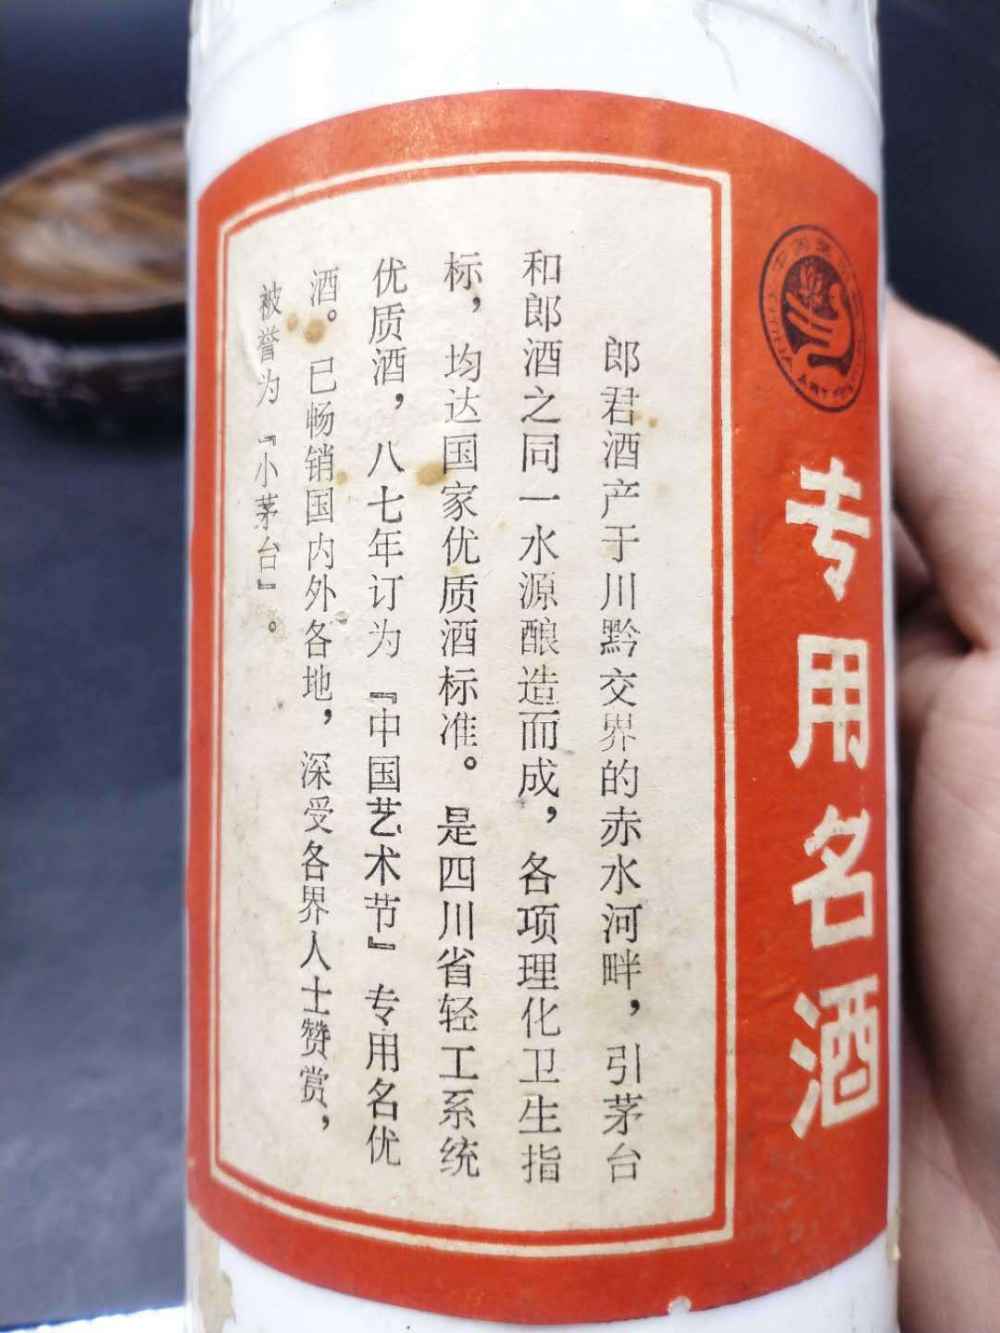 专用名酒
郎君酒产于川黔交界的赤水河畔，引茅台
和郎酒之同一水源酿造而成，各项理化卫生指
标，均达国家优质酒标准。是四川省轻工系统
优质酒，八七年订为『中国艺术节』专用名优
酒。已畅销国内外各地，深受各界人士赞赏，
被誉为『小茅台』。